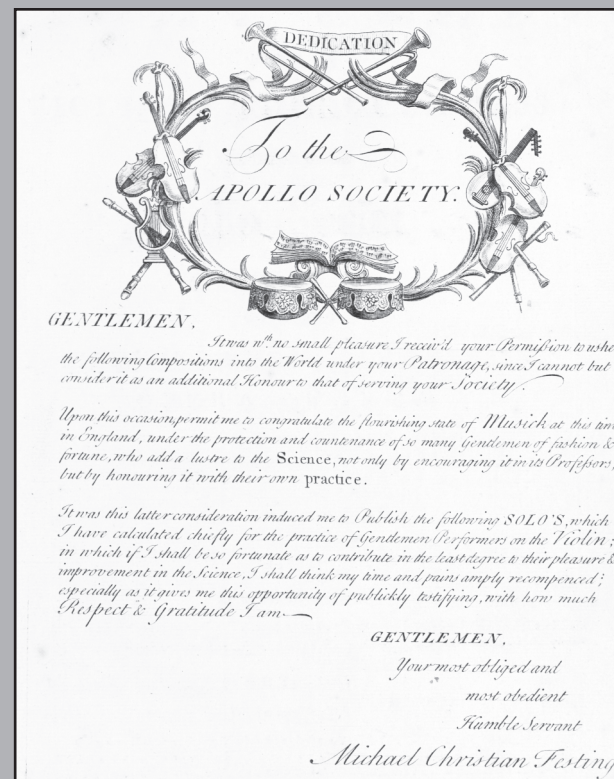 DEDICATION
To the
APOLLO SOCIETY.
GENTLEMEN,
It was wth. no small pleasure I receiv'd your Permiſsion to ushe
the following Compositions into the World under your Patronage, since I cannot but
consider it as an additional Honour to that of serving your Society.
Upon this occasion, permit me to congratulate the flourishing state of Musick at this tim
in England, under the protection and countenance of so many Gentlemen of fashion &
fortune, who add a lustre to the Science, not only by encouraging it in its Profeſsors,
but by honouring it with their own practice.
It was this latter consideration induced me to Publish the following SOLO'S, which
I have calculated chiefly for the practice of Gentlemen Performers on the Violin;
in which if I shall be so fortunate as to contribute in the least degree to their pleasure &
improvement in the Science, I shall think my time and pains amply recompenced;
especially as it gives me this opportunity of publickly testifying, with how much
Respect & Gratitude I am
GENTLEMEN,
Your most obliged and
most obedient
Humble Servant
Michael Christian Festing